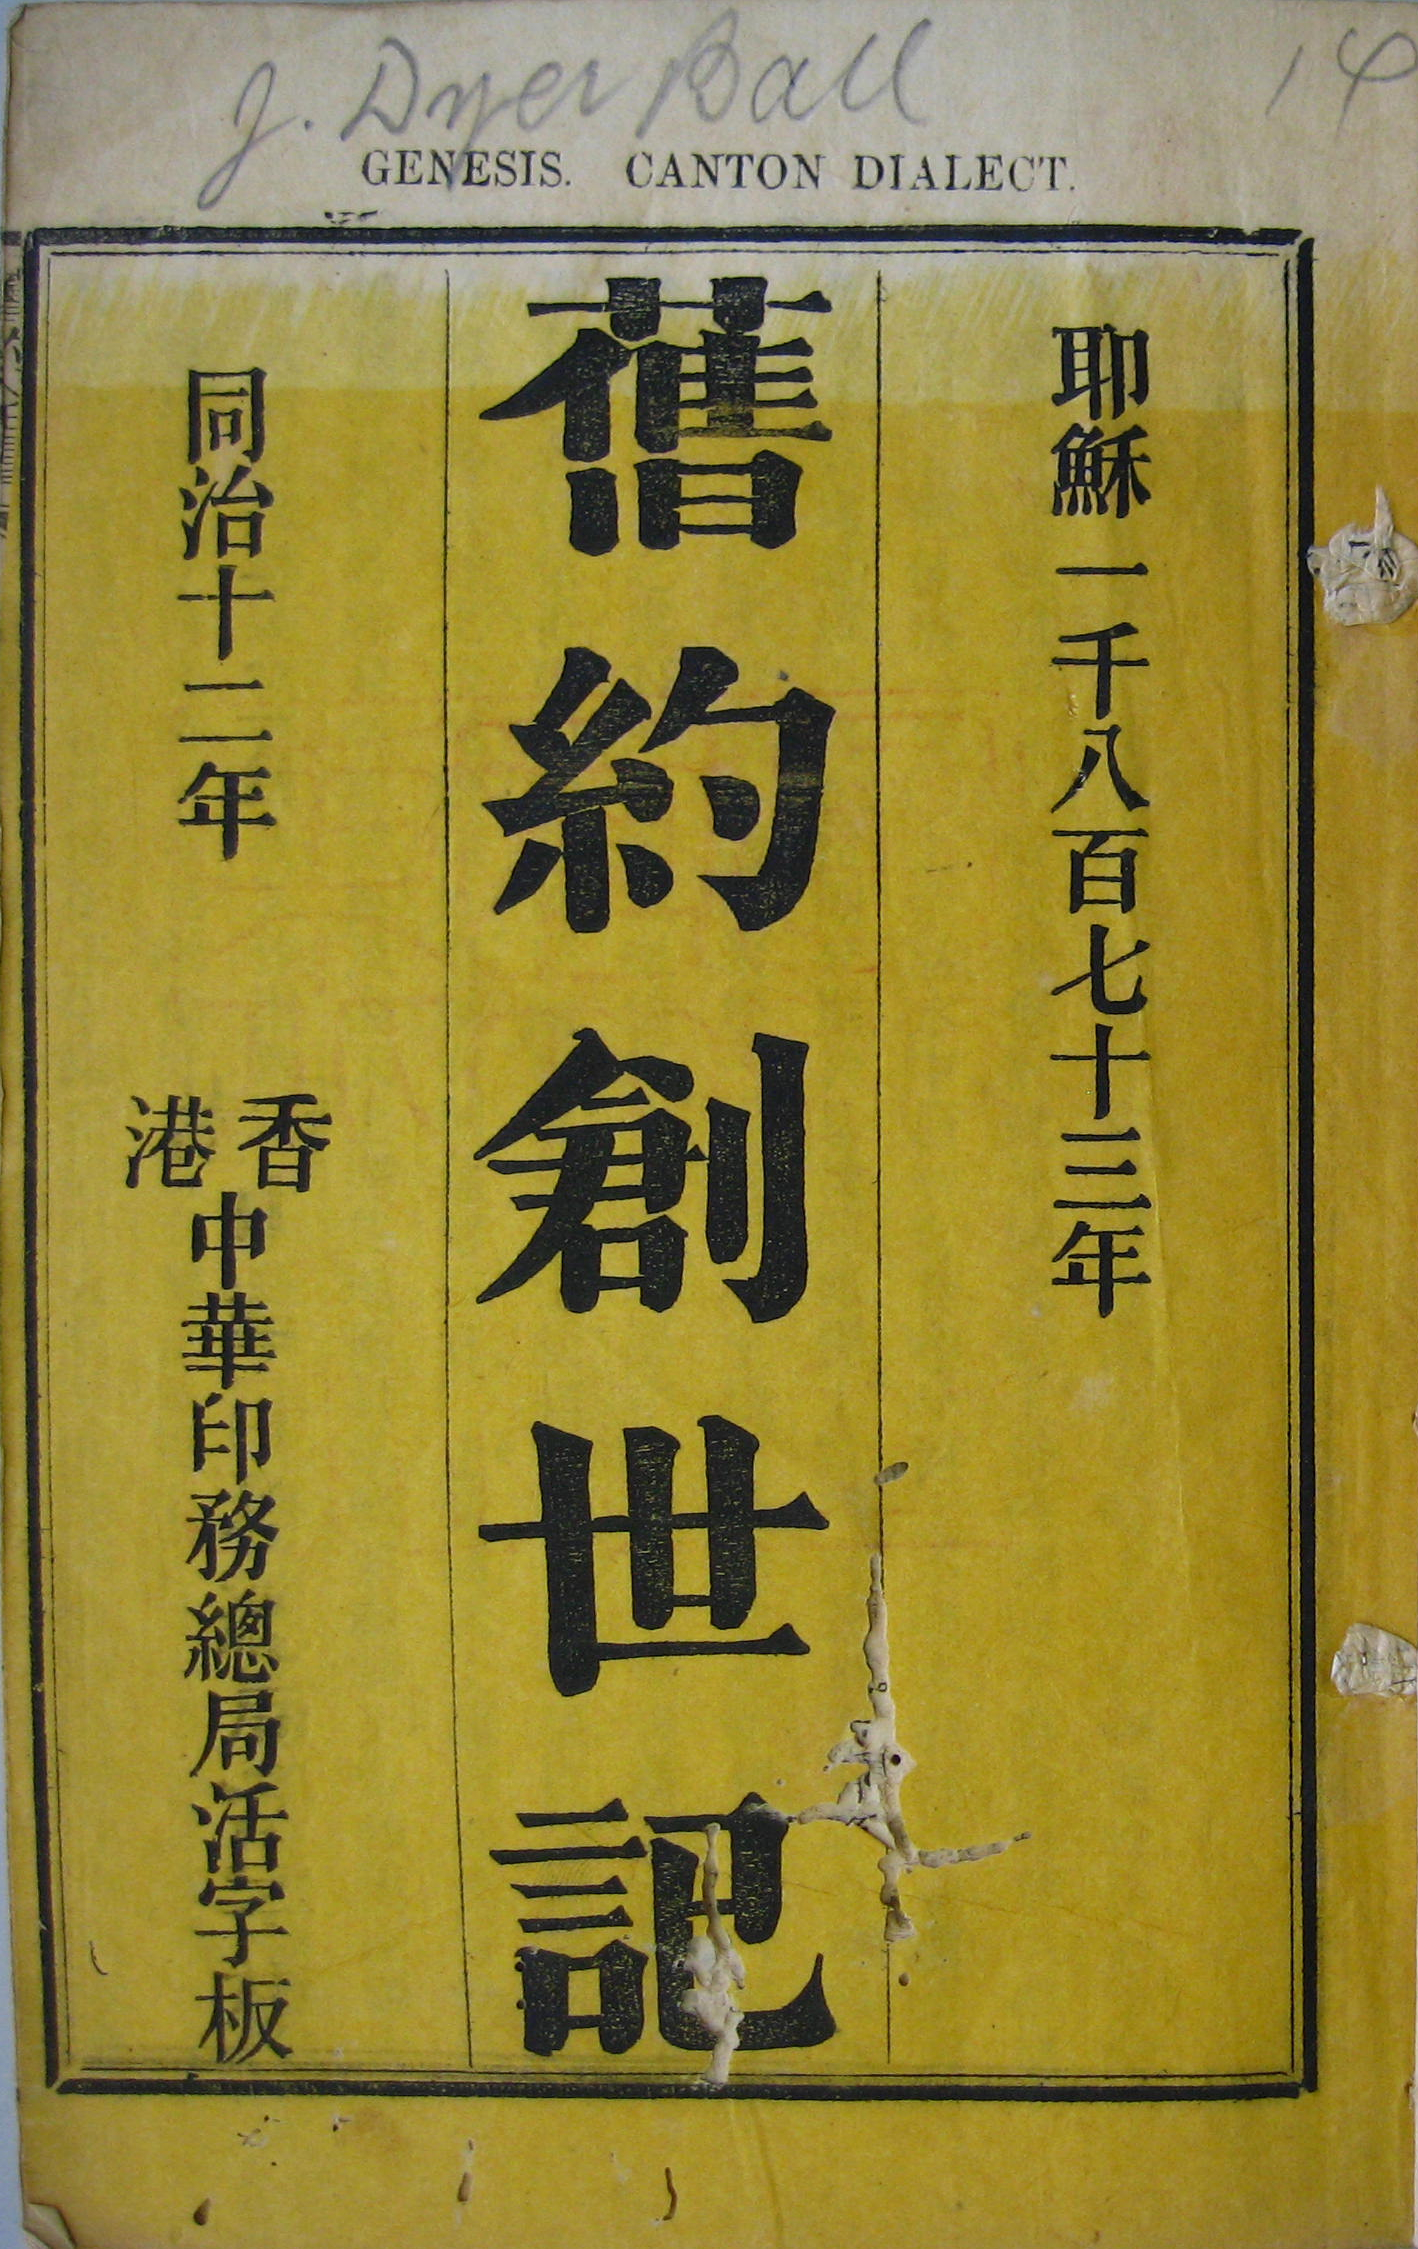 J. Dyer Ball 14
GENESIS. CANTON DIALECT.
耶穌一千八百七十三年
舊約創世記
同治十二年
香港中華印務總局活字板